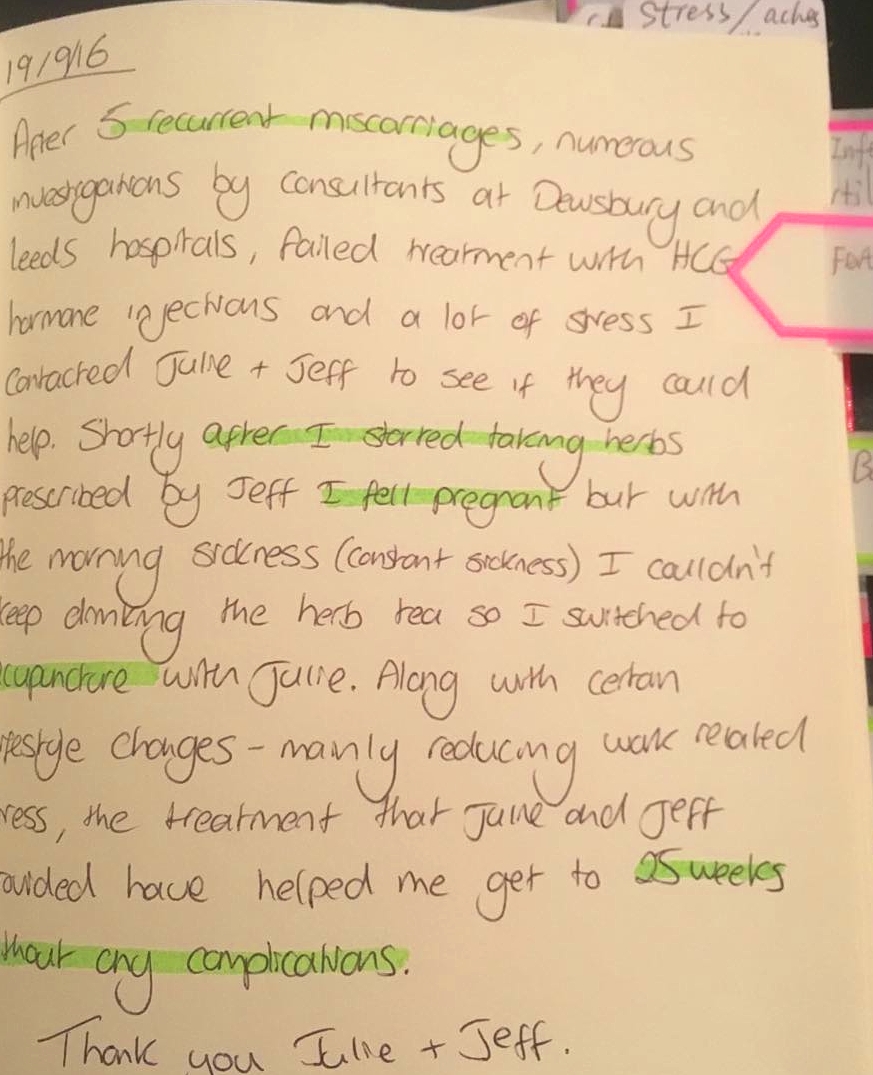 Stress/aches
19/9/16
After 5 recurrent miscarriages, numerous
investigations by consultants at Dewsbury and
Leeds hospitals, failed treatment with HCG
hormone injections and a lot of stress I
contacted Julie + Jeff to see if they could
help. Shortly after I started taking herbs
prescribed by Jeff I fell pregnant but with
the morning sickness (constant sickness) I couldn't
keep drinking the herb tea so I switched to
cupuncture with Julie. Along with certain
ifestyle changes - mainly reducing work related
ress, the treatment that Julie and Jeff
ovided have helped me get to 25 weeks
thout any complications.
Thank you Julie + Jeff.